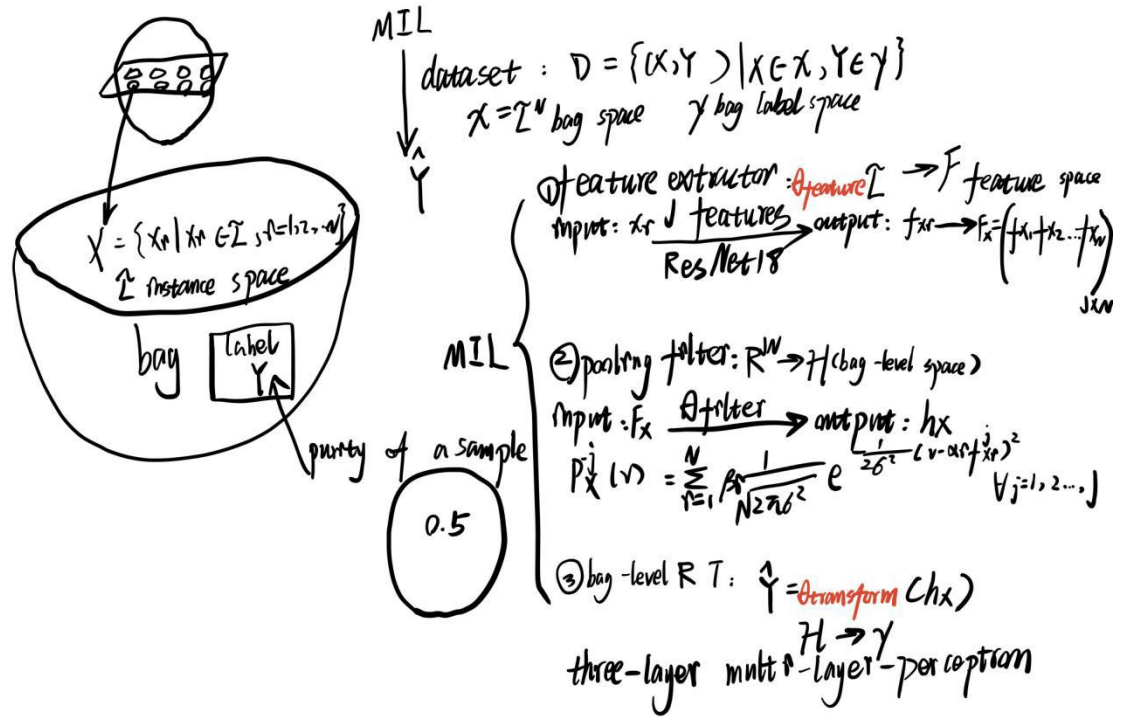 MIL
dataset : D = {(X,Y)|X∈𝒳,Y∈𝒴}
𝒳=ℐᴺ bag space 𝒴 bag label space
Ŷ
X = {xr|xr∈ℐ, r=1,2,..N}
ℐ instance space
bag
label
Y
purity of a sample
0.5
MIL
① feature extructor : θfeature ℐ → F feature space
input: xr J features output: fxr → Fx=(fx1 fx2 ... fxN) J×N
ResNet18
② pooling filter: R^JN → H (bag-level space)
input: Fx θfilter output: hx
P̃ʲx(v) = Σ_{r=1}^{N} βr 1/√2πσ² e^{-1/2σ² (v-αr fʲxr)²} ∀j=1,2...,J
③ bag-level R T: Ŷ = θtransform (hx)
H → 𝒴
three-layer multi-layer-perceptron